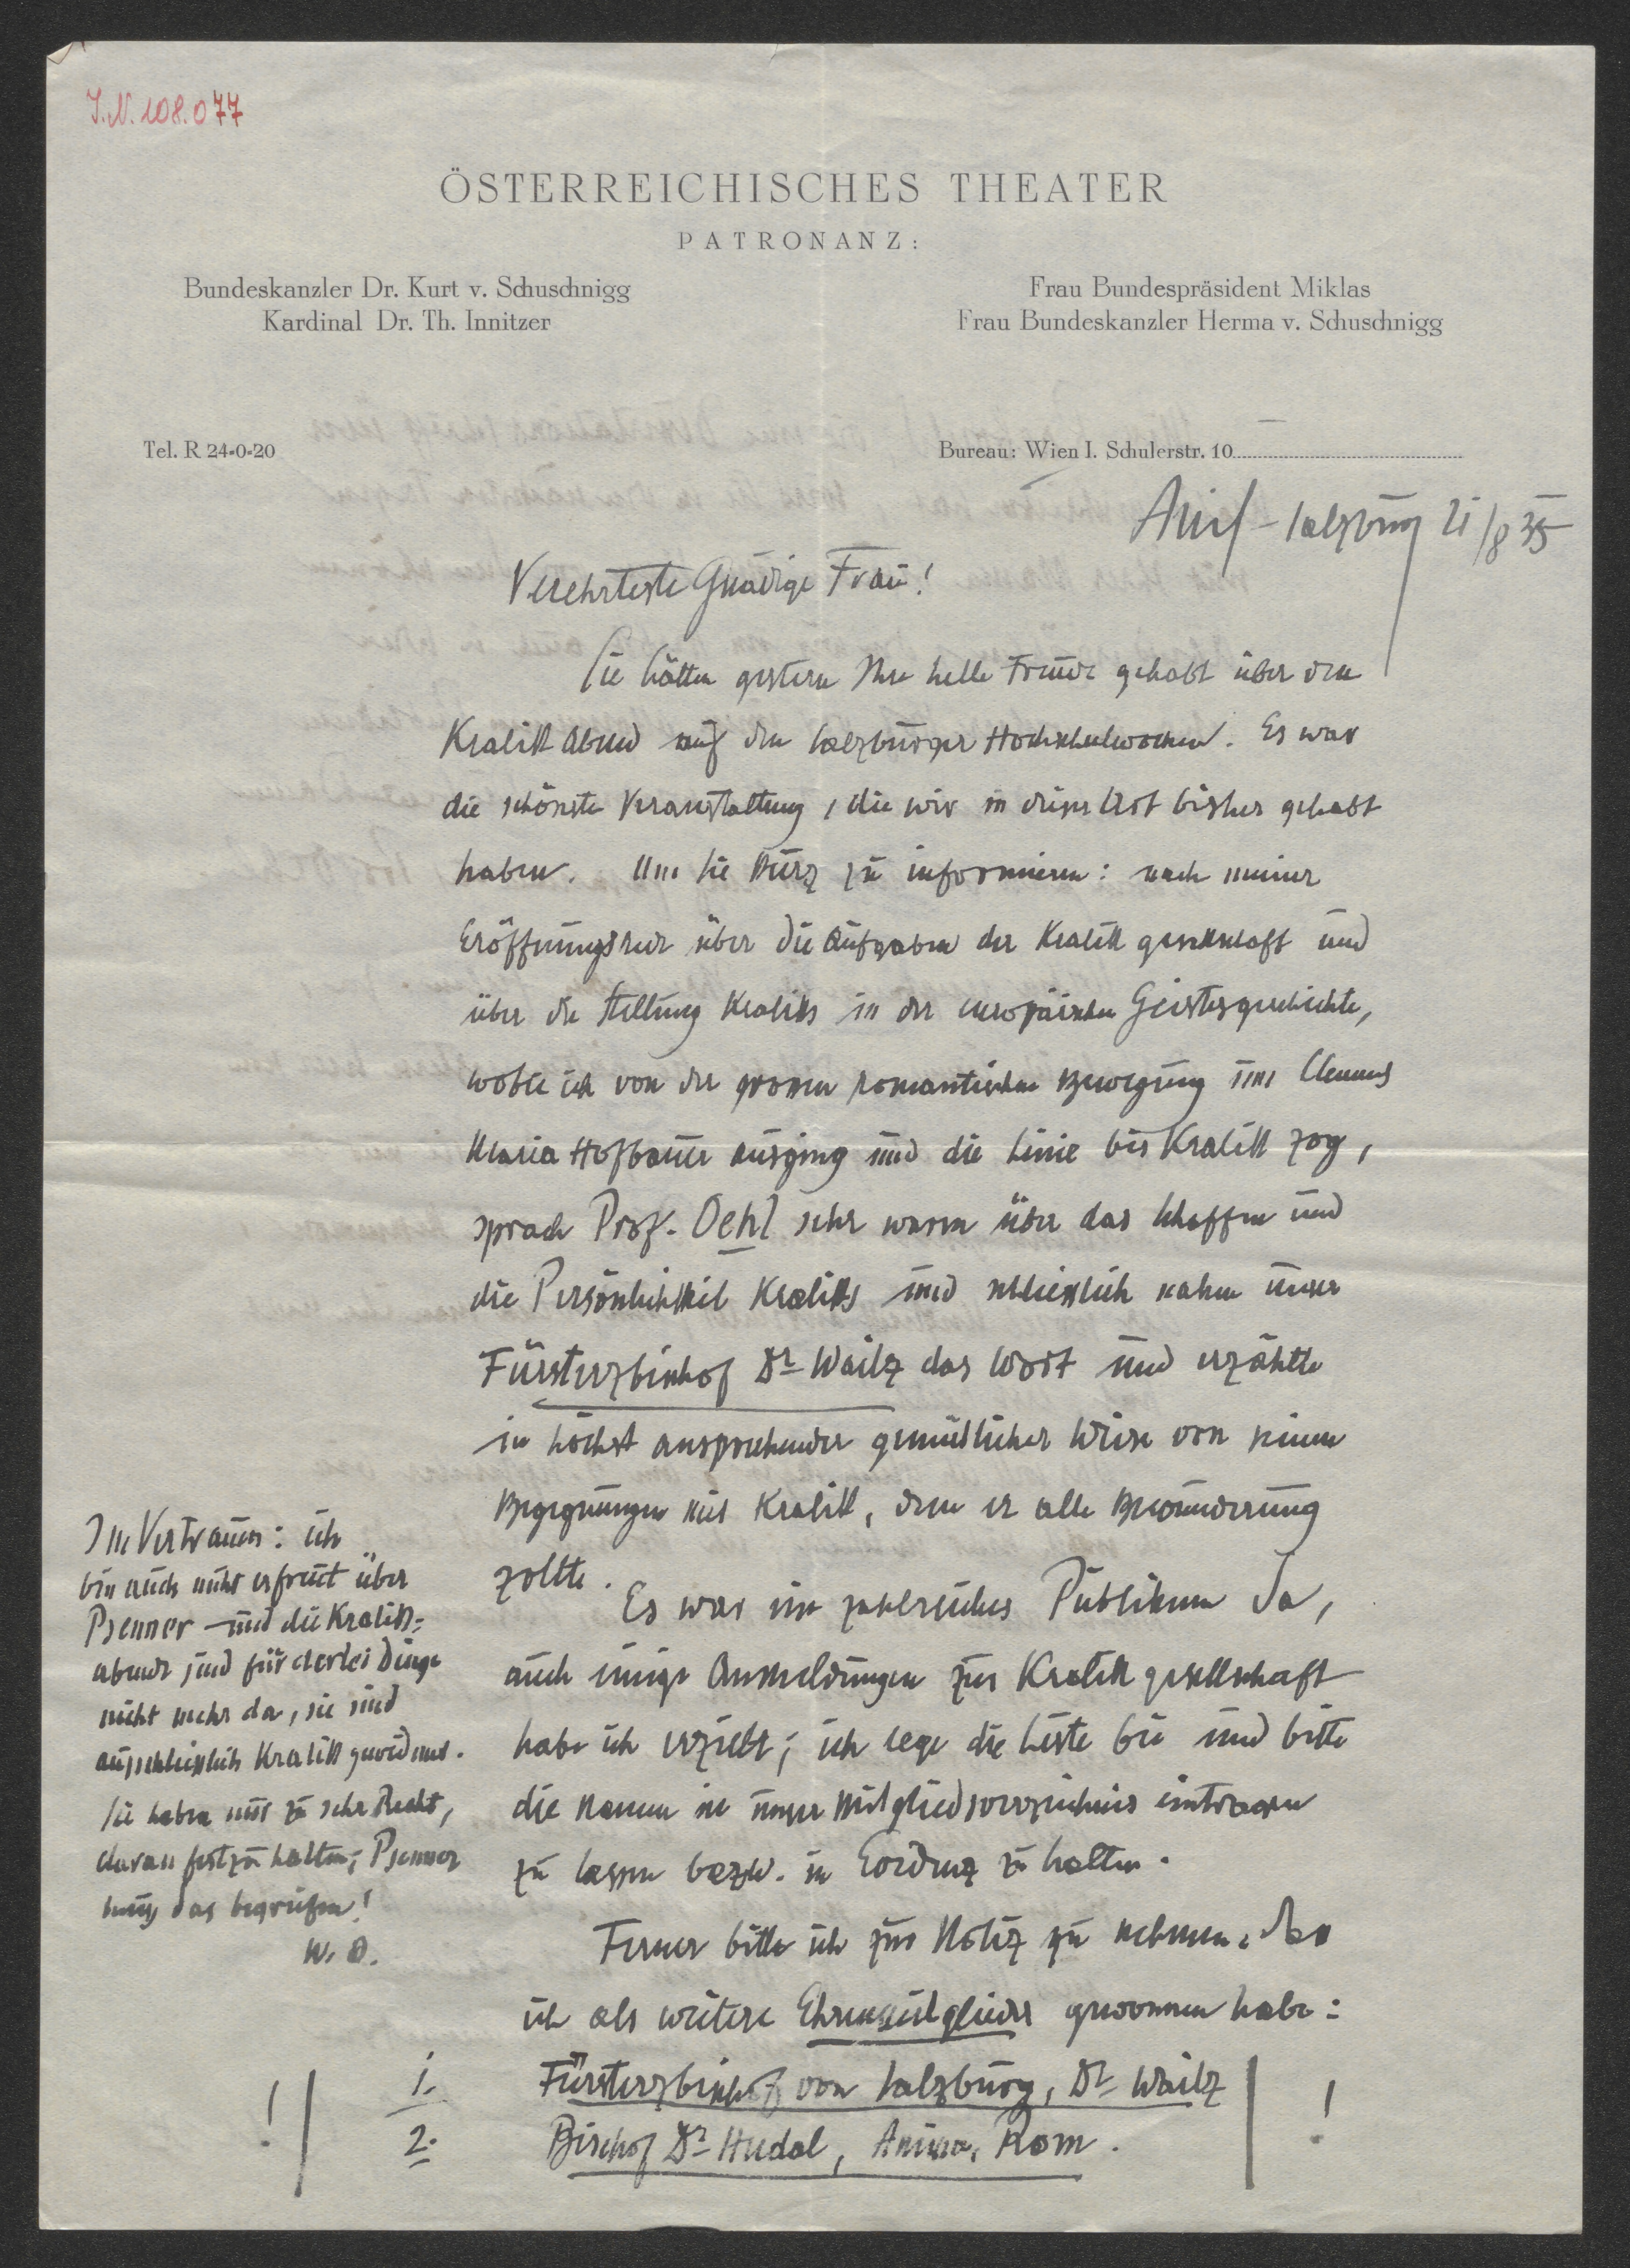 I.N. 108.077
ÖSTERREICHISCHES THEATER
PATRONANZ:
Bundeskanzler Dr. Kurt v. Schuschnigg
Kardinal Dr. Th. Innitzer
Frau Bundespräsident Miklas
Frau Bundeskanzler Herma v. Schuschnigg
Tel. R 24-0-20
Bureau: Wien I. Schulerstr. 10
Anif - Salzburg 21/8 35
Verehrteste Gnädige Frau!
Sie hätten gestern Ihre helle Freude gehabt über den
Kralik Abend auf den Salzburger Hochschulwochen. Es war
die schönste Veranstaltung, die wir in dieser Art bisher gehabt
haben. Um Sie kurz zu informieren: nach meiner
Eröffnungsrede über die Aufgaben der Kralik gesellschaft und
über die Stellung Kraliks in der europäischen Geistesgeschichte,
wobei ich von der grossen romantischen Bewegung um Clemens
Maria Hofbauer ausging und die Linie bis Kralik zog,
sprach Prof. Oehl sehr warm über das Schaffen und
die Persönlichkeit Kraliks und schliesslich nahm unser
Fürsterzbischof Dr Waitz das Wort und erzählte
in höchst ansprechender gemütlicher Weise von seinen
Begegnungen mit Kralik, dem er alle Bewunderung
zollte.
Es war ein zahlreiches Publikum da,
auch einige Anmeldungen zur Kralik gesellschaft
habe ich erzielt; ich lege die Liste bei und bitte
die Namen in unser Mitgliedsverzeichnis eintragen
zu lassen bezw. in Evidenz zu halten.
Ferner bitte ich zur Notiz zu nehmen, dass
ich als weitere Ehrenmitglieder gewonnen habe:
! 1. Fürsterzbischof von Salzburg, Dr Waitz !
2. Bischof Dr Hudal, Anima, Rom.
Im Vertrauen: ich
bin auch nicht erfreut über
Psenner - und die Kralik-
abende sind für derlei Dinge
nicht mehr da, sie sind
ausschliesslich Kralik gewidmet.
Sie haben nur zu sehr Recht,
daran festzuhalten; Psenner
muss das begreifen!
W. O.